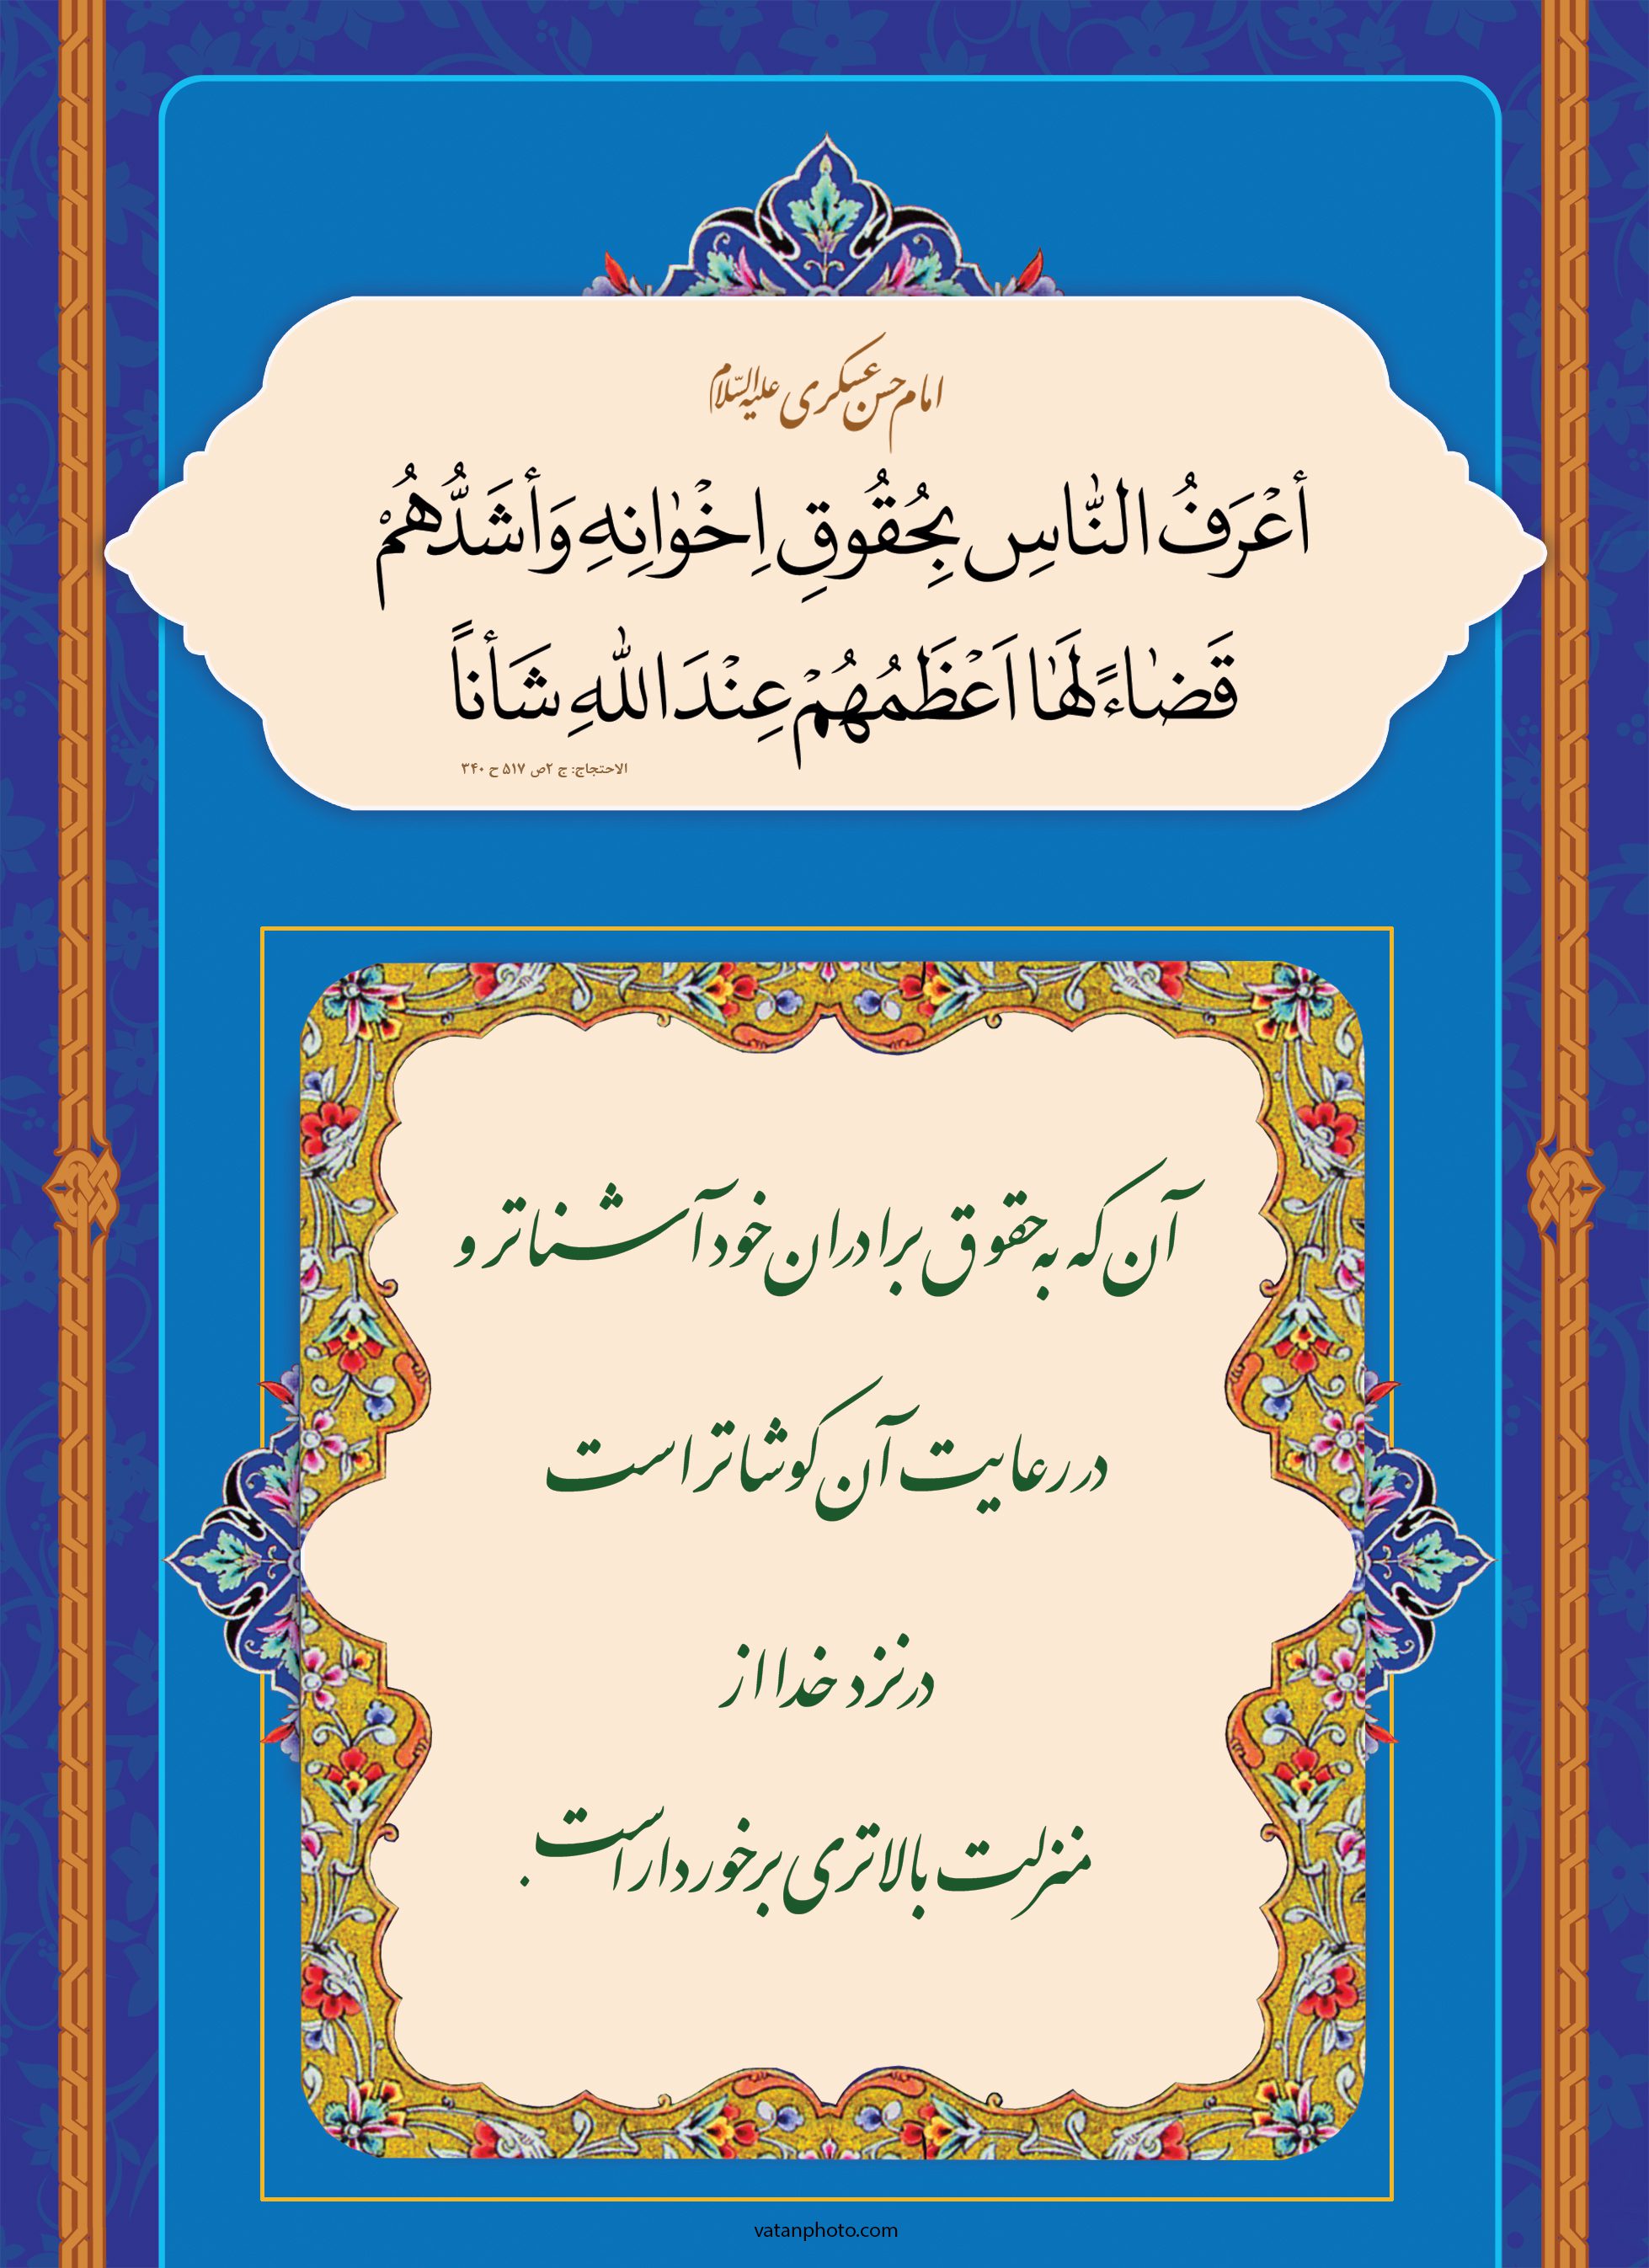 امام حسن عسکری علیه السّلام
أَعْرَفُ النّٰاسِ بِحُقُوقِ اِخْوٰانِهِ وَأَشَدُّهُمْ
قَضٰاءً لَهٰا اَعْظَمُهُمْ عِنْدَ اللّٰهِ شَأناً
الاحتجاج: ج ۲ص ۵۱۷ ح ۳۴۰
آن که به حقوق برادران خود آشناتر و
در رعایت آن کوشاتر است
در نزد خدا از
منزلت بالاتری برخوردار است.
vatanphoto.com